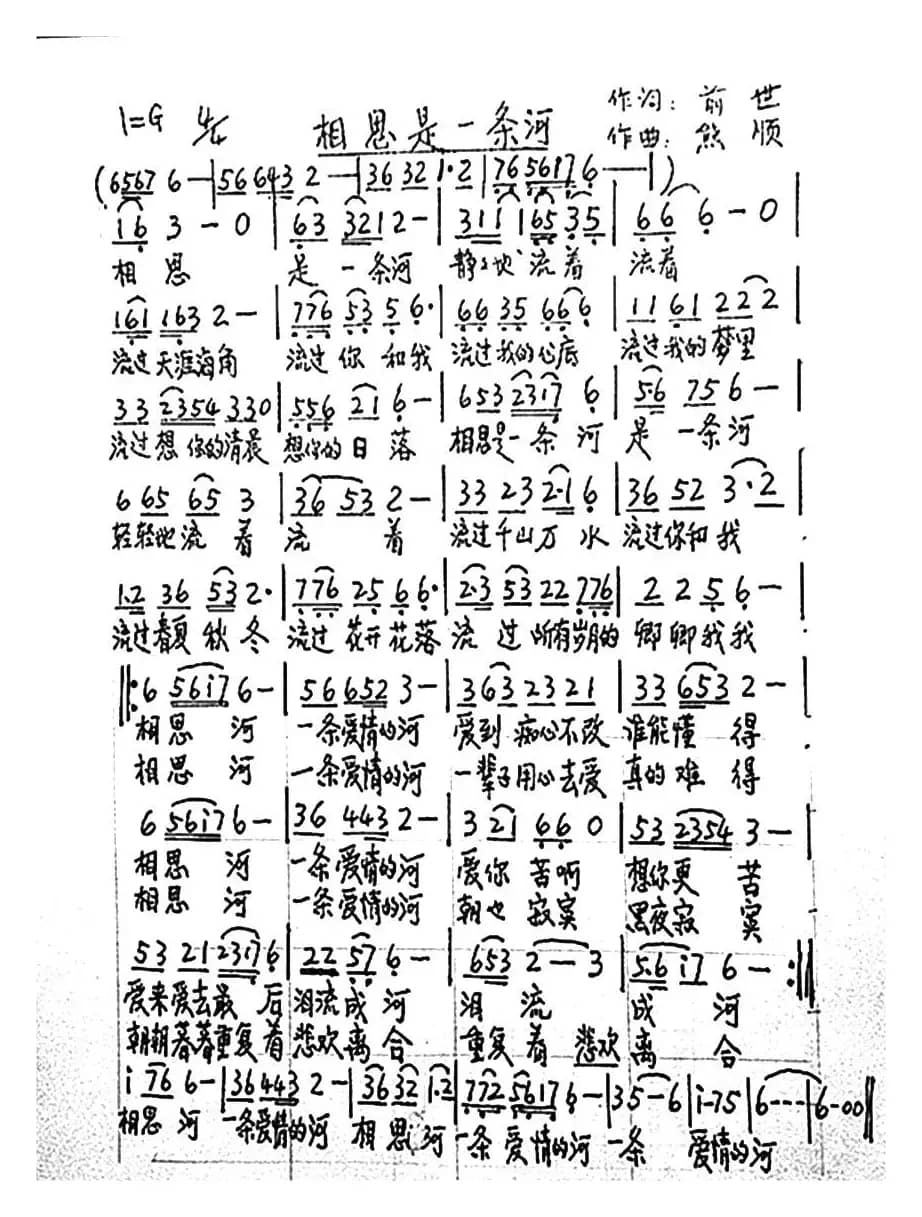 1=G 4/4 相思是一条河 作词：前世
作曲：熊顺
(6567 6—|56 643 2—|36 32 1·2|76 5617 6—|)
16 3-0|63 3212-|311 165 35|66 6-0|
相思 是一条河 静静地流着 流着
161 163 2-|776 53 5 6·|66 35 66 6|11 61 22 2|
流过天涯海角 流过你和我 流过我的心底 流过我的梦里
33 2354 330|556 21 6-|653 2317 6|5·6 75 6-|
流过想你的清晨 想你的日落 相思是一条河 是一条河
6 65 65 3|36 53 2-|33 23 2·1 6|36 52 3·2|
轻轻地流着 流着 流过千山万水 流过你和我
1·2 36 53 2·|776 25 6 6·|2·3 53 22 776|2 2 5 6-|
流过春夏秋冬 流过花开花落 流过所有岁月的 卿卿我我
‖:6 56i7 6-|56 652 3-|363 23 21|33 653 2-|
相思河 一条爱情的河 爱到痴心不改 谁能懂得
相思河 一条爱情的河 一辈子用心去爱 真的难得
6 56i7 6-|36 443 2-|3 21 66 0|53 2354 3-|
相思河 一条爱情的河 爱你苦啊 想你更苦
相思河 一条爱情的河 朝也寂寞 黑夜寂寞
53 21 2317 6|22 57 6-|653 2—3|5·6 i7 6-:‖
爱来爱去最后 泪流成河 泪流成河
朝朝暮暮重复着 悲欢离合 重复着悲欢离合
i 76 6-|36 443 2-|36 32 1·2|772 5617 6-|35-6|i-75|6---|6-00‖
相思河 一条爱情的河 相思河 一条爱情的河 一条 爱情的河